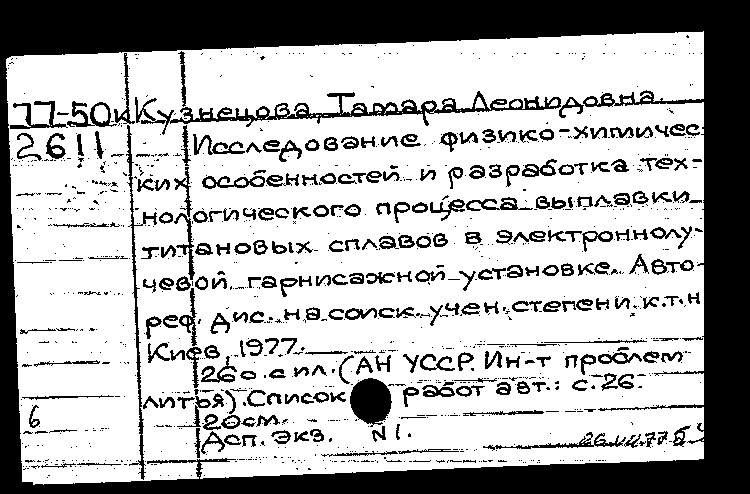 77-50к Кузнецова, Тамара Леонидовна.
2611 Исследование физико-химичес-
ких особенностей и разработка тех-
нологического процесса выплавки
титановых сплавов в электроннолу-
чевой гарнисажной установке. Авто-
реф. дис. на соиск. учен. степени к.т.н
Киев, 1977.
26 с. с ил. (АН УССР. Ин-т проблем
литья). Список работ авт.: с. 26.
6 20см.
Дсп. экз. N 1.